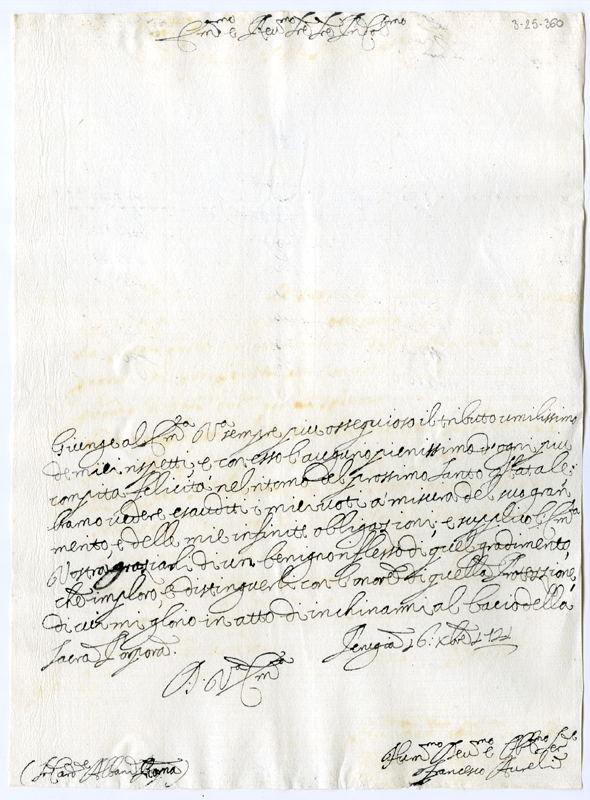 Em.mo e Rev.mo Sig.re Sig.re Pron Col.mo
3-25-360
Giunge al Em.za V.a sempre più ossequioso il tributo umilissimo
de miei rispetti, e con esso l'augurio pienissimo d'ogni più
compita felicità nel ritorno del prossimo Santo Natale;
bramo vedere esauditi i miei voti a misura del suo gran
mento, e delle mie infinite obligazioni, e supplico l'Em.za
Vostra graziarli di un benigno riflesso di quel gradimento,
che imploro, e distinguerli con l'onore di quella Protezione,
di cui mi glorio in atto di inchinarmi al bacio della
Sacra Porpora.
Venezia 16. Xbre
D. V.a Em.za
(S.r Card.e Albani Roma)
Francesco Aureli